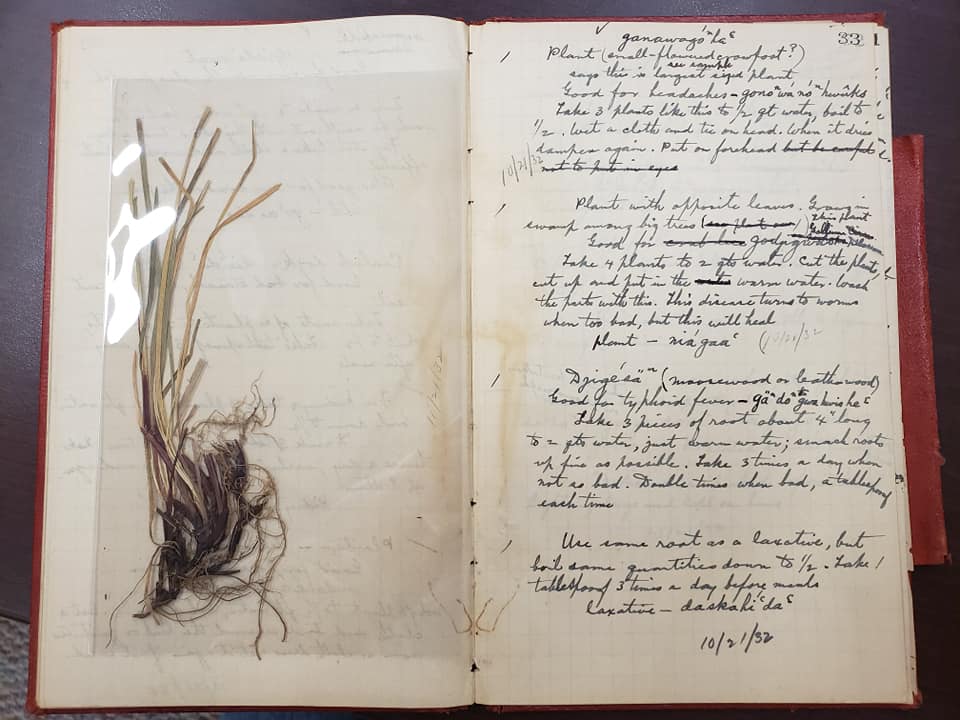 33
ganawagó"he‘
Plant (small-flowered crowfoot?)
see sample
says this is largest sized plant
Good for headaches – gonoⁿwaⁿnoⁿhwûks
Take 3 plants like this to 1/2 qt water, boil to
1/2. Wet a cloth and tie on head. When it dries
dampen again. Put on forehead but be careful
not to put in eyes
10/21/32
Plant with opposite leaves. Grows in
swamp among big trees (see plant
this plant
Good for
Take 4 plants to 2 qts water. Cut the plant,
cut up and put in the warm water. Wash
the parts with this. This disease turns to worms
when too bad, but this will heal
plant – niagaa‘ (10/21/32
Djigé‘säⁿ" (moosewood or leatherwood)
Good for typhoid fever –
Take 3 pieces of root about 4" long
to 2 qts water, just warm water; smash roots
up fine as possible. Take 3 times a day when
not so bad. Double times when bad, a tablespoonf
each time
Use same root as a laxative, but
boil same quantities down to 1/2. Take 1
tablespoonf 3 times a day before meals
laxative – daskahi‘da‘
10/21/32
11/2/32